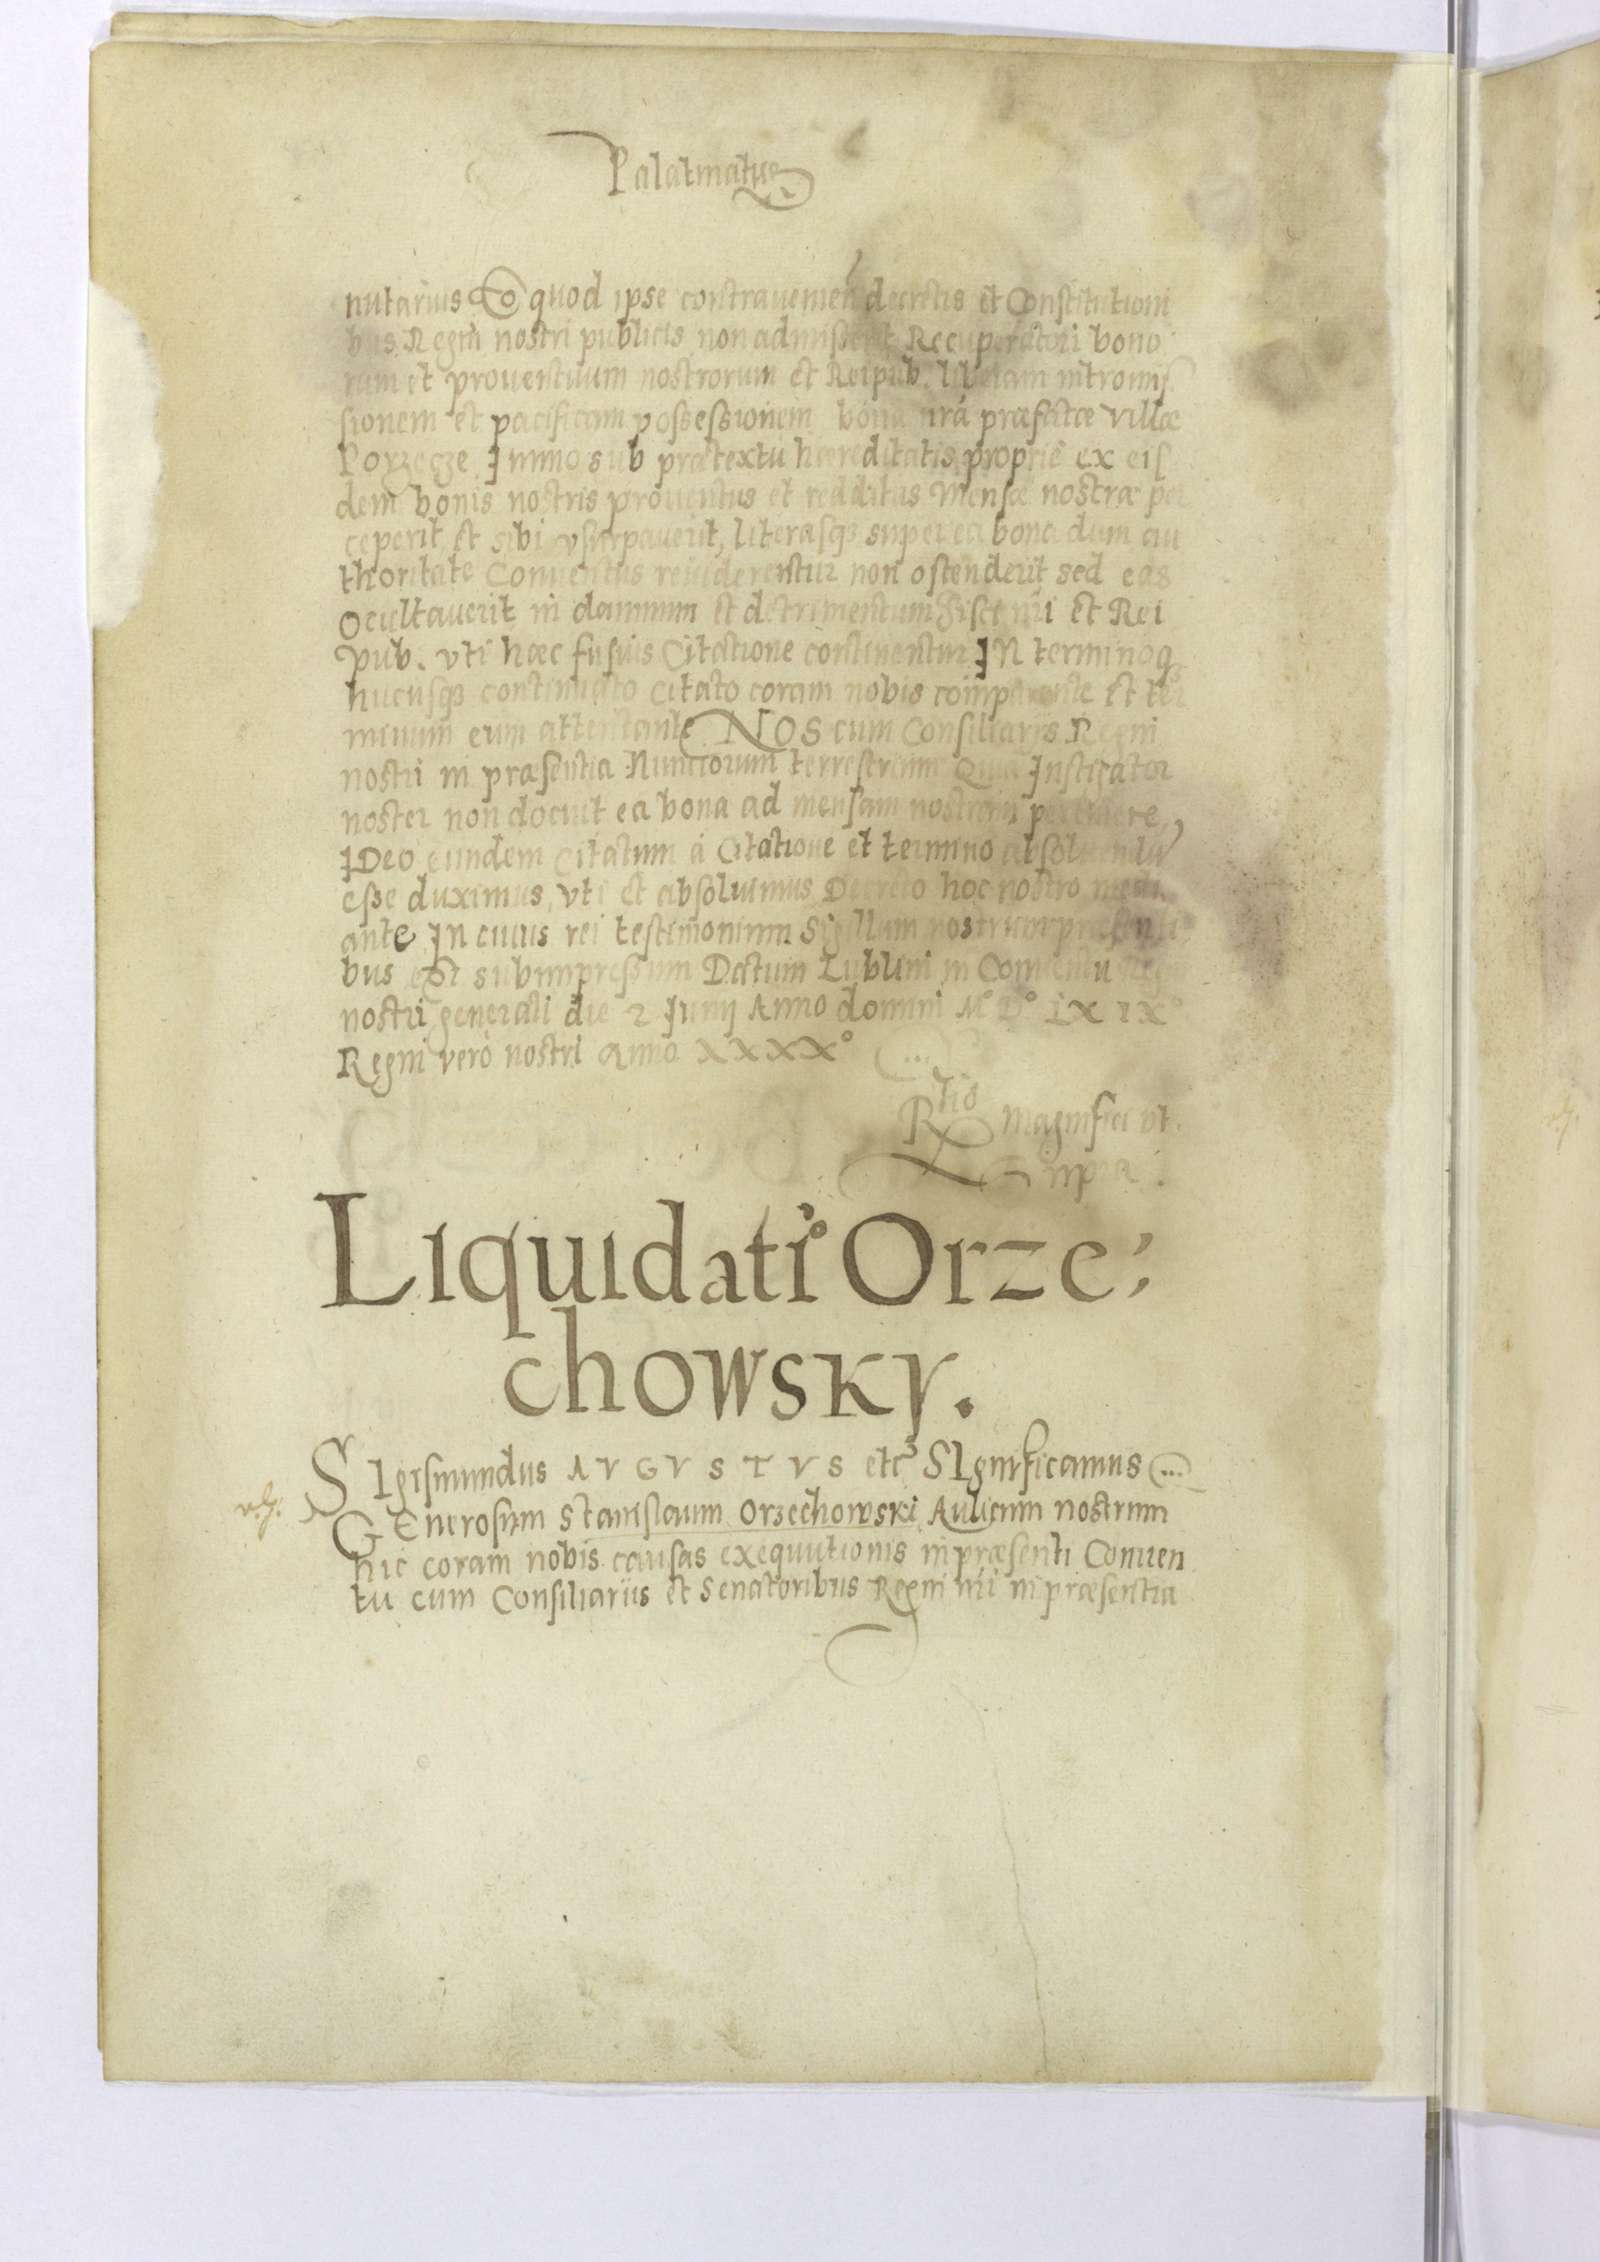 Palatinatus
nutarius Eo quod ipse contraueniens decretis et Constitutioni
bus Regni nostri publicis non admiserit Recuperatori bono
rum et prouentuum nostrorum et Reipub. liberam intromis
sionem et pacificam possessionem bonorum nrā præfatæ villæ
Porzecze Immo sub prætextu hæreditatis propriē ex eis
dem bonis nostris prouentus et redditus Mensæ nostræ per
ceperit et sibi vsurpauerit, literasq3 super ea bona dum au
thoritate Conuentus reuiderentur non ostenderit sed eas
Ocultauerit in damnum et detrimentum Fisci nrī et Rei
pub. vti hæc fusius Citatione continentur IN terminoq3
hucusq3 continuato Citato coram nobis comparente et ter
minum eum attentante NOS cum Consiliariis Regni
nostri in præsentia Nuntiorum terrestrium Quia Instigator
noster non docuit ea bona ad mensam nostram pertinere,
IDeo eundem Citatum á Citatione et termino absoluendū
esse duximus, vti et absoluimus Decreto hoc nostro medi
ante In cuius rei testimonium Sigillum nostrum præsenti
bus est subimpressum Datum Lublini in Conuentu Regni
nostri generali die 2 Iunij Anno domini M° D° LX IX°
Regni vero nostri anno XXXX° ...
Rtio Magnifici vt
supra.
Liquidati° Orze;
chowsky.
SIgismundus AVGVSTVS etc SIgnificamus ...
GEnerosum Stanislaum Orzechowski Aulicum nostrum
hic coram nobis causas exequutionis in præsenti Conuen
tu cum Consiliariis et Senatoribus Regni nrī in præsentia